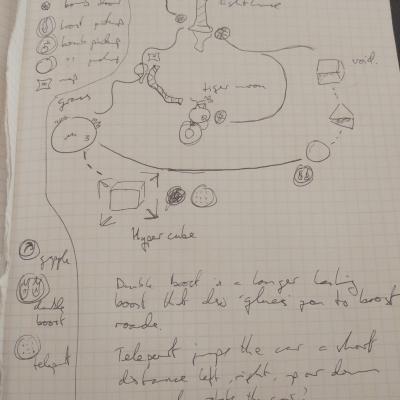 boost pickup
bomb pickup
pickup
map
void.
grass
tiger moon
3
Hyper cube
grapple
double
boost
teleport
Double Boost is a longer lasting
boost that also glues you to boost
roads.
Teleport jumps the car a short
distance left, right, up or down
the car?